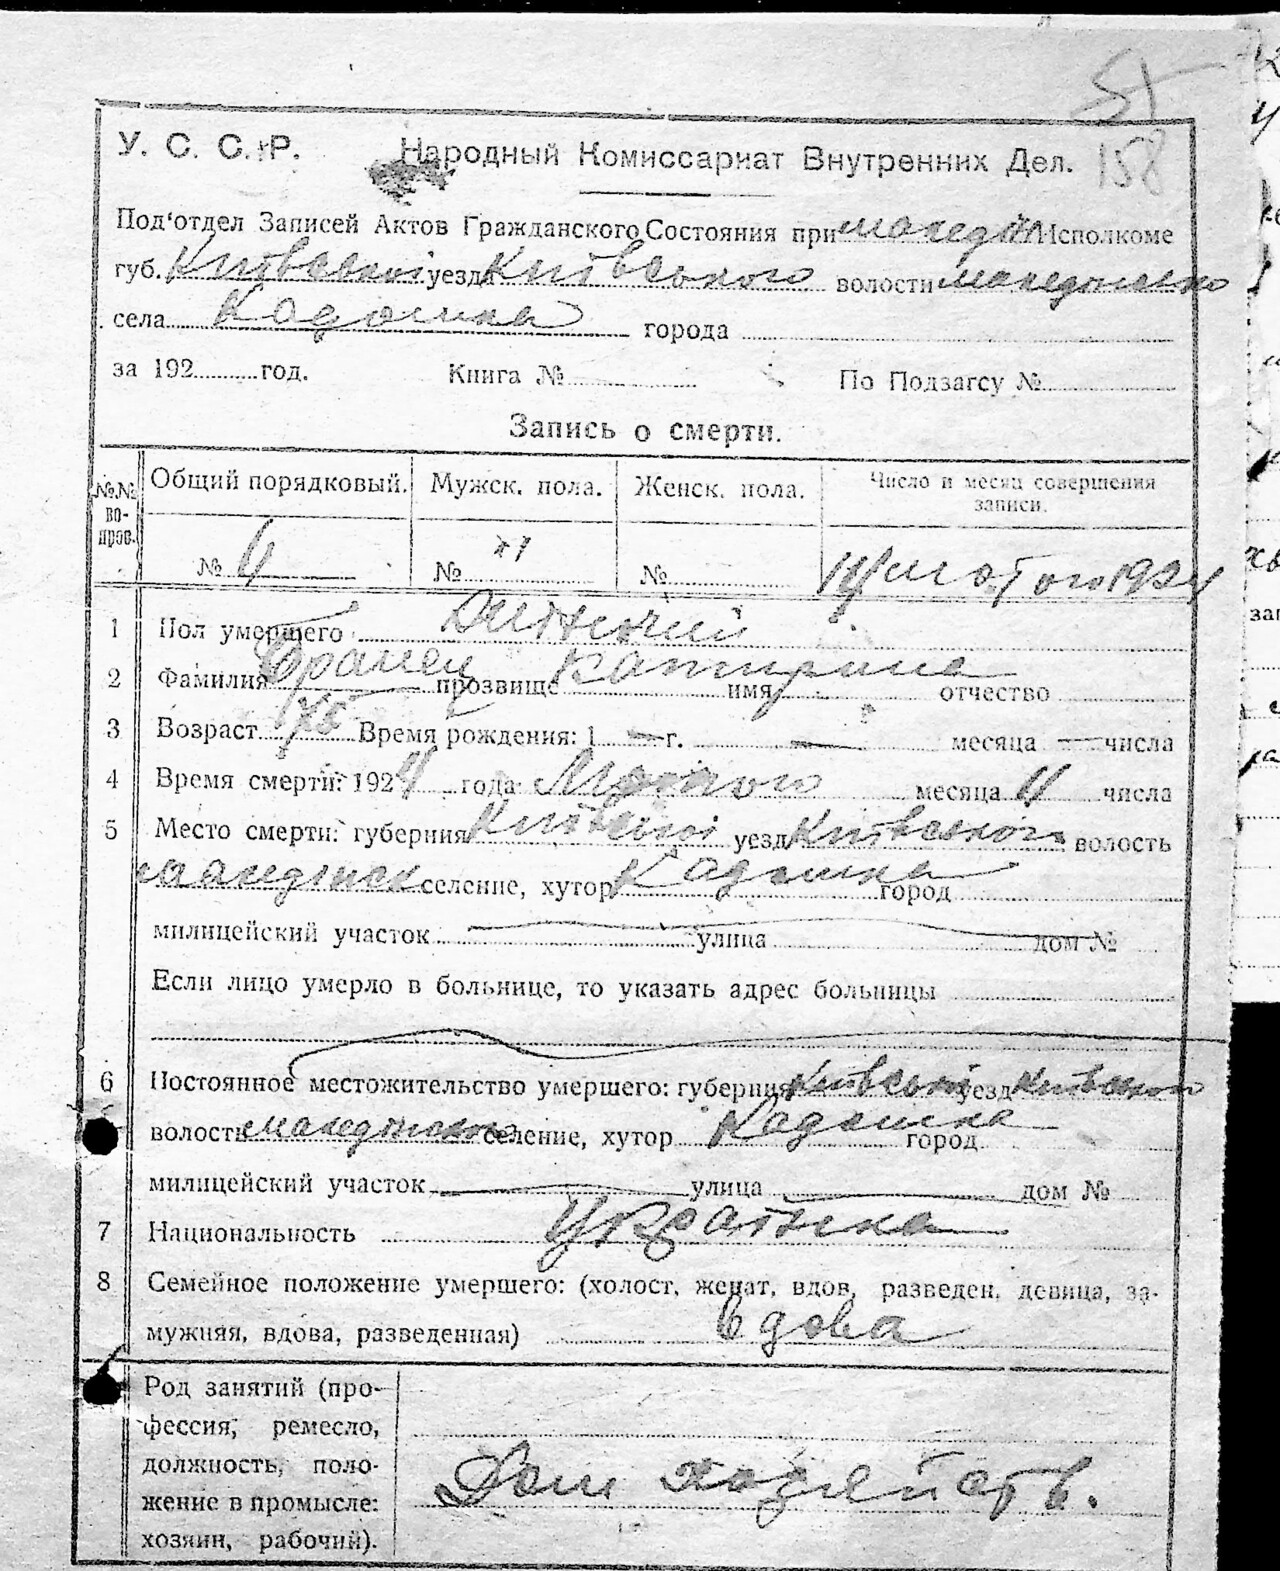 51
158
У. С. С. Р. Народный Комиссариат Внутренних Дел.
Под'отдел Записей Актов Гражданского Состояния при Македон Исполкоме
губ. Київської уезда Київського волости Македонсько
села Кадомка города
за 192 год. Книга № По Подзагсу №
Запись о смерти.
№№ во-прос. Общий порядковый. Мужск. пола. Женск. пола. Число и месяц совершения записи.
№ 4 № № лютого 1924
1 Пол умершего Жіночий
2 Фамилия прозвище Катерина имя отчество
3 Возраст 75 Время рождения: 1 — г. — месяца — числа
4 Время смерти: 1924 года Лютого месяца 4 числа
5 Место смерти: губерния Київської уезд Київського волость
Македонск селение, хутор Кадомка город
милицейский участок улица дом №
Если лицо умерло в больнице, то указать адрес больницы
6 Постоянное местожительство умершего: губерния Київської уезд Київського
волость Македонского селение, хутор Кадомка город
милицейский участок улица дом №
7 Национальность Українка
8 Семейное положение умершего: (холост, женат, вдов, разведен, девица, за-
мужняя, вдова, разведенная) вдова
Род занятий (про-
фессия, ремесло,
должность, поло-
жение в промысле:
хозяин, рабочий).
Дом хозяйств.